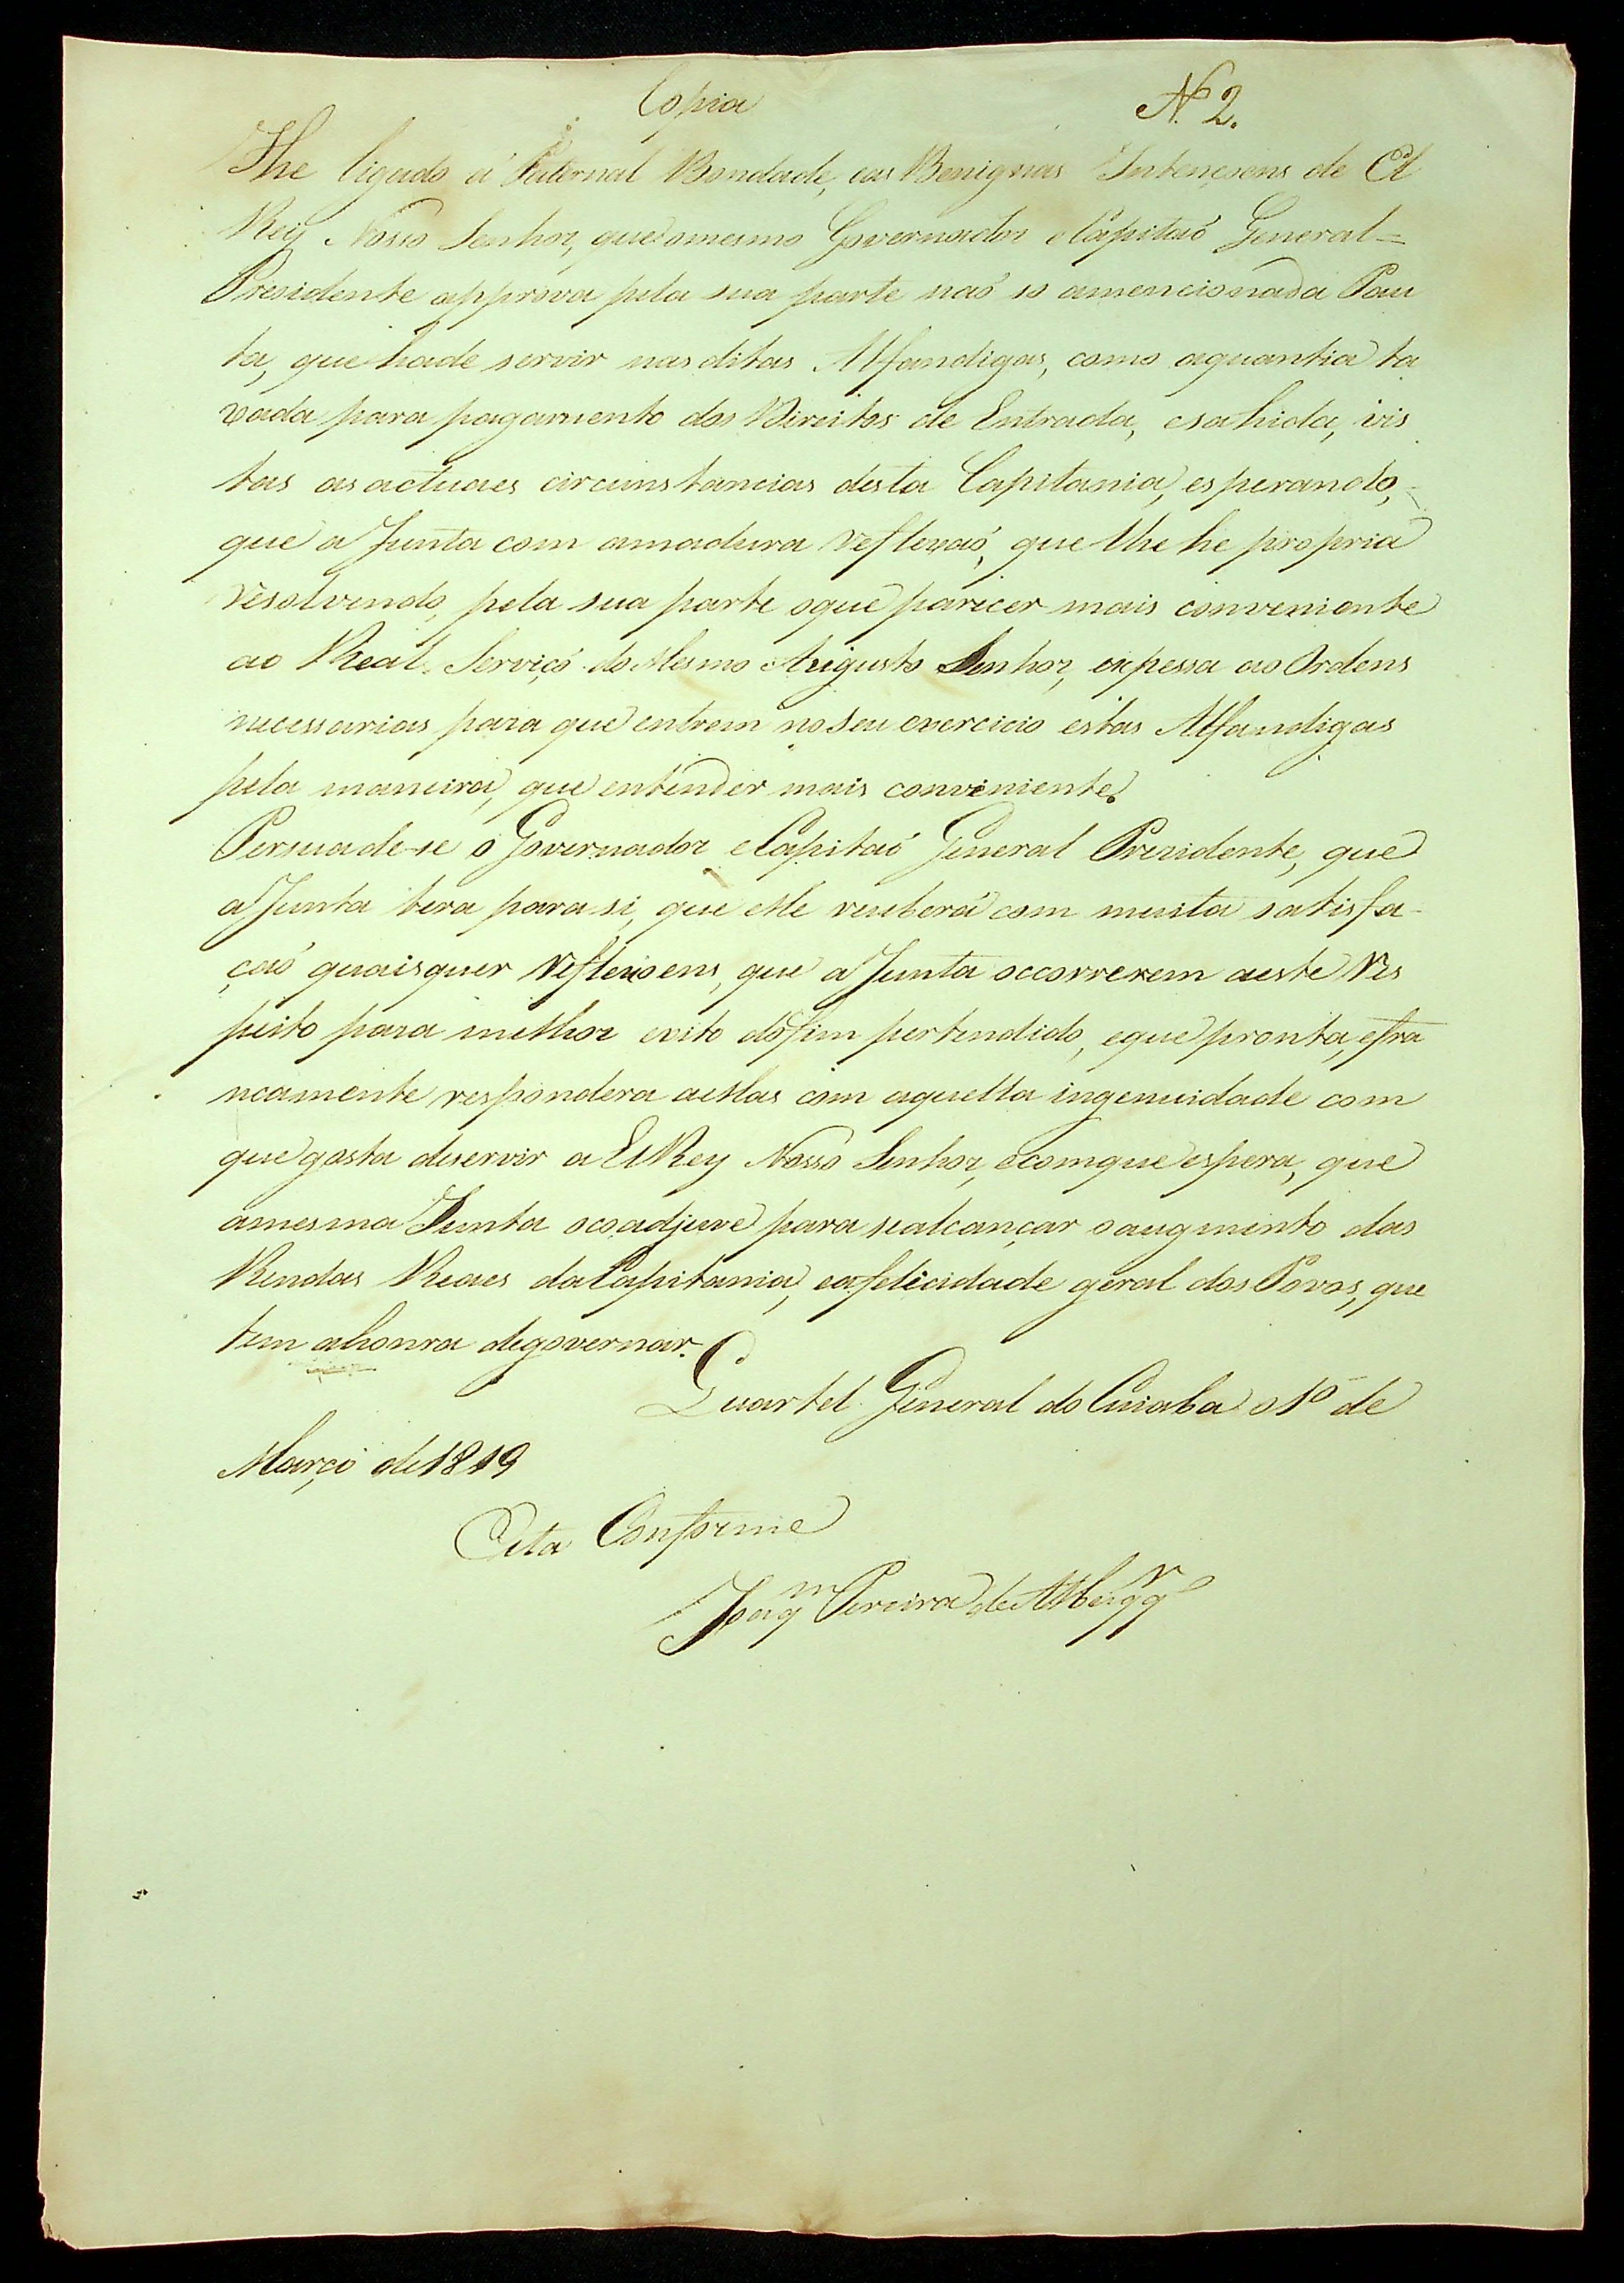 Copia
N. 2.
The ligado á Paternal Bondade, eas Benignas Intençoens de El
Rey Nosso Senhor, que omesmo Governador e Capitaó General =
Presidente approva pela sua parte naó so amencionada Pau
ta, que hade servir nas ditas Alfandigas, como aquantia ta
xada para pagamento dos Direitos de Entrada, esahida, vis
tas as actuaes circumstancias desta Capitania, esperando,
que a Junta com amadura reflexaó, que lhe he propria
resolvendo, pela sua parte oque parecer mais conveniente
ao Real Serviço do Mesmo Augusto Senhor, expessa as Ordens
necessarias para que entrem no seu exercicio estas Alfandigas
pela maneira, que entender mais conveniente.
Persuade-se o Governador e Capitaó General Prezidente, que
a Junta tera para si, que elle receberá com muita satisfa-
çaó quaisquer Reflexoens, que a Junta occorrerem aeste Res
peito para melhor exito do fim pertendido, eque pronta, efra
ncamente respondera aellas com aquella ingenuidade com
que gosta deservir a El Rey Nosso Senhor, ecomque espera, que
amesma Junta ocoadjuve para sealcançar oaugmento das
Rendas Reaes da Capitania, eafelicidade geral dos Povos, que
tem ahonra degovernar.
Quartel General do Cuiaba o 1º de
Março de 1819
Esta Conforme
Joaqm Pereira de